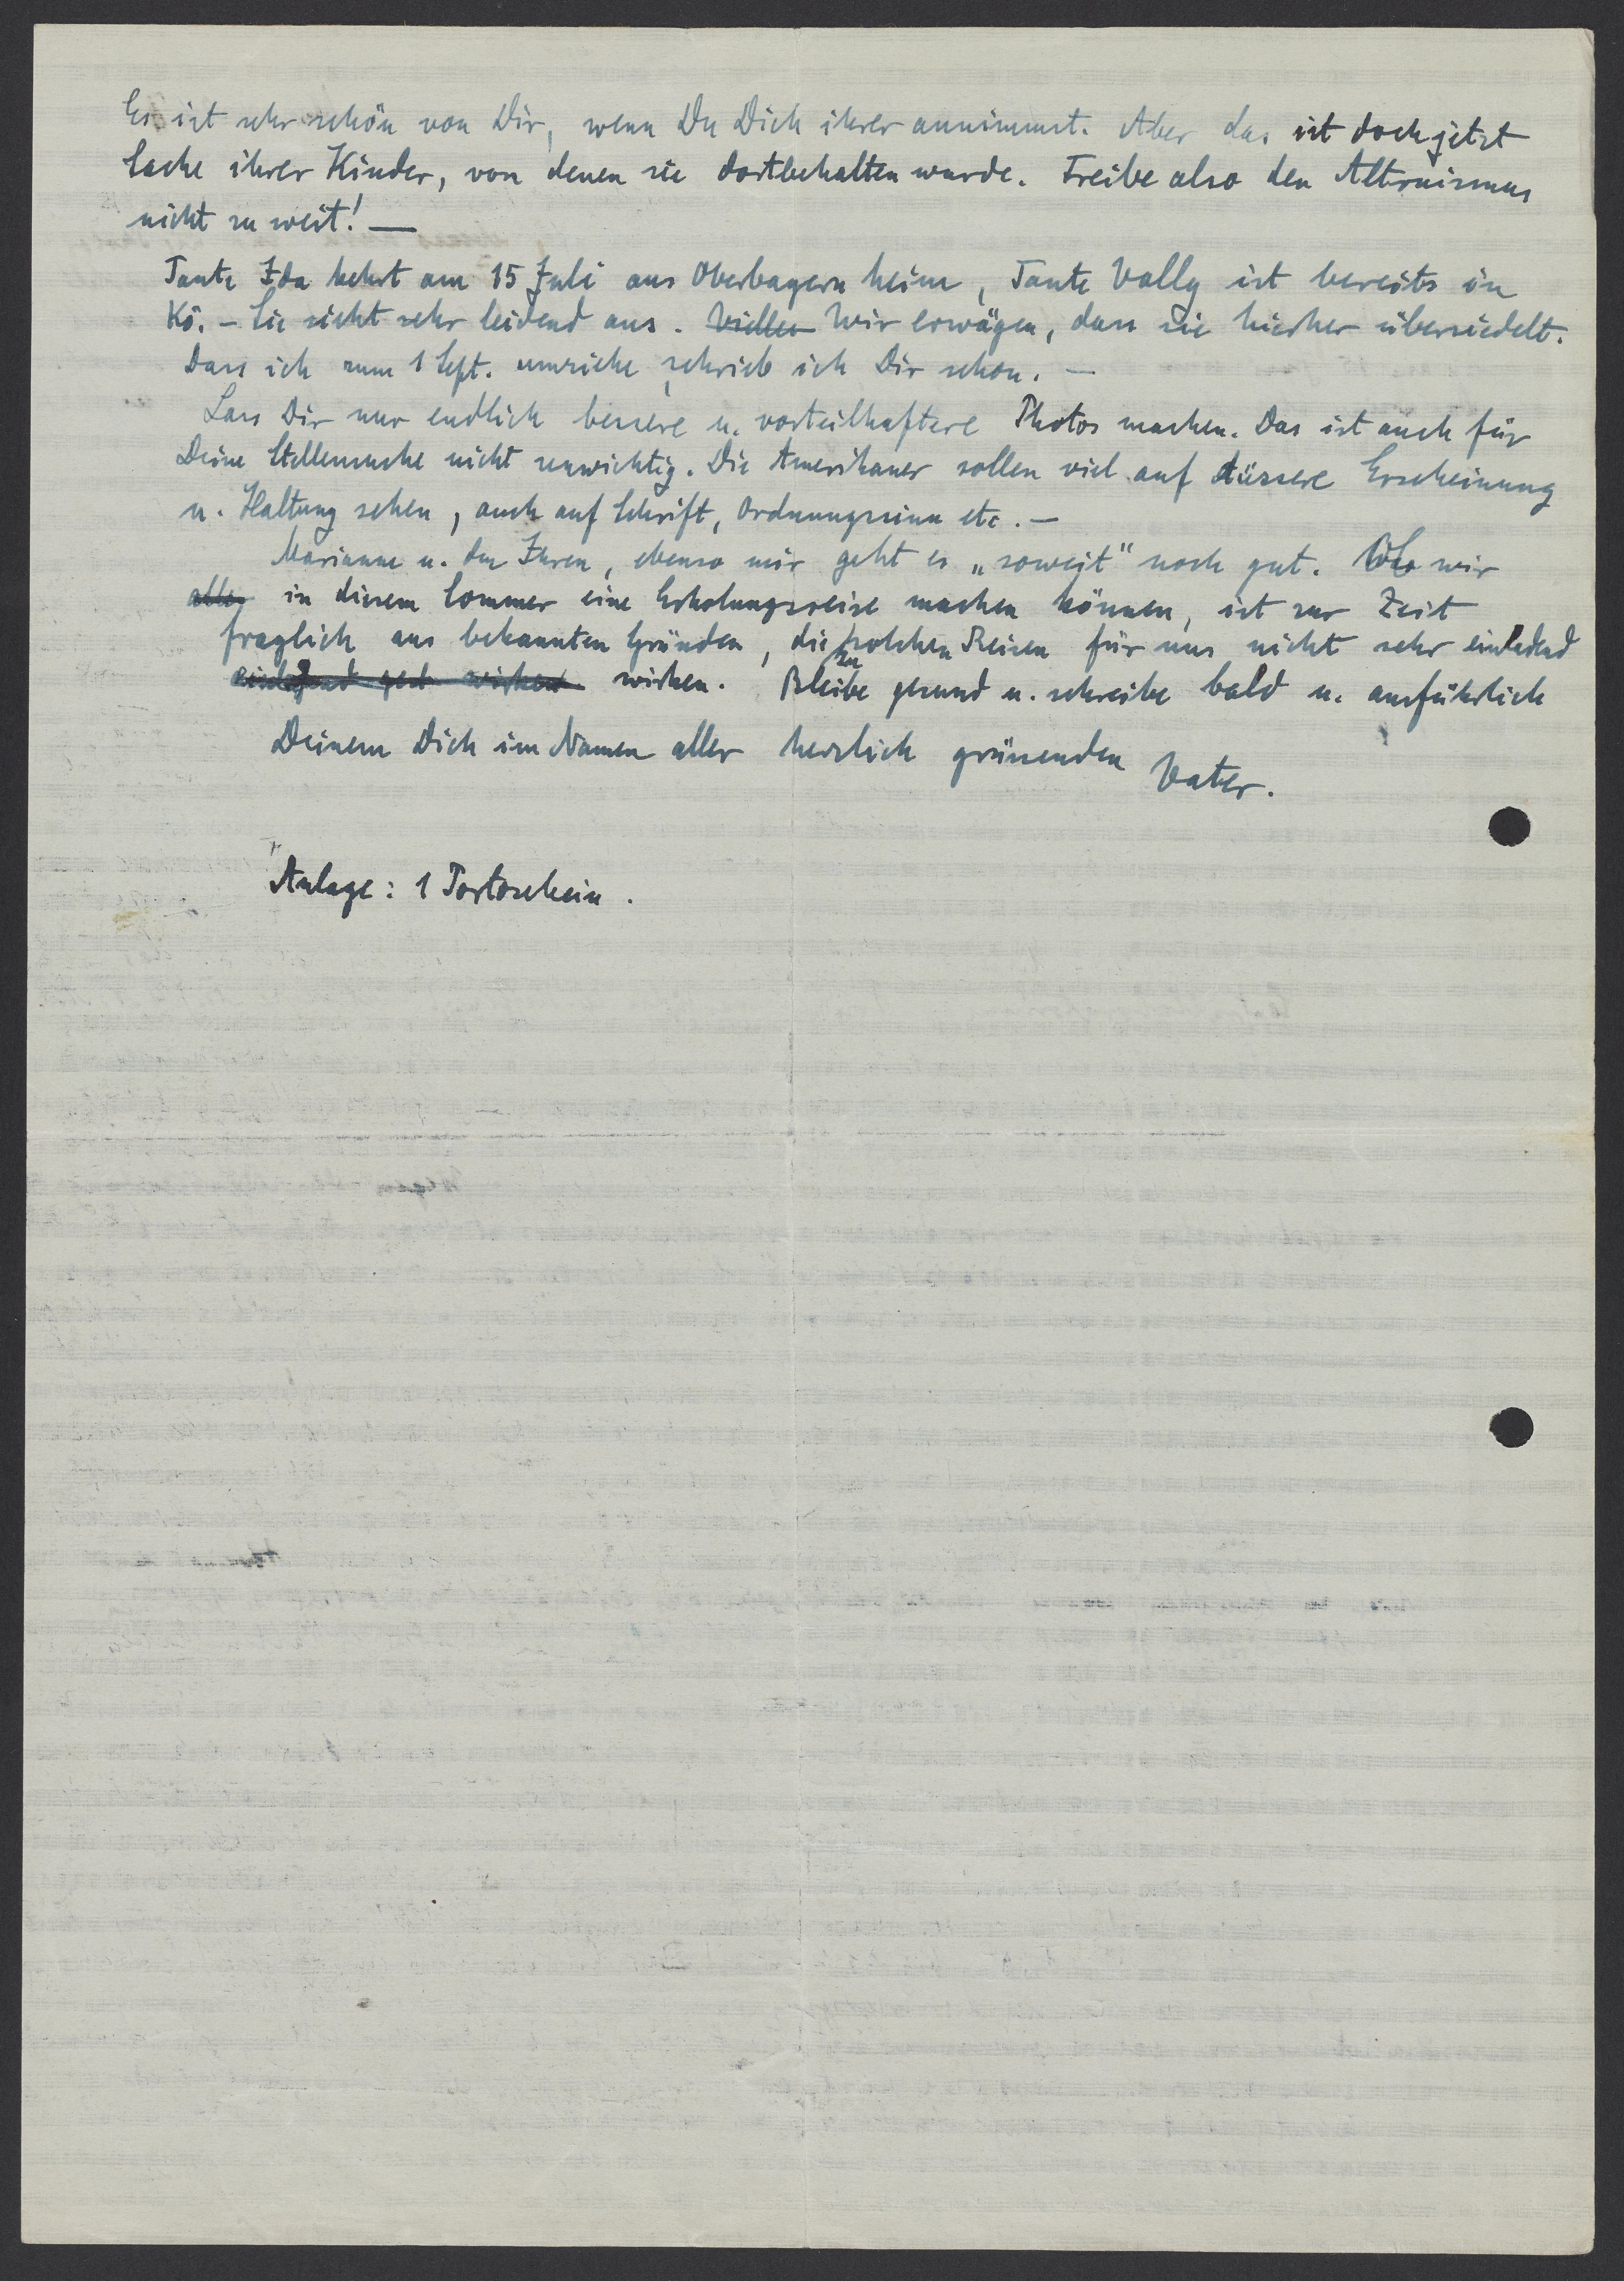 Es ist sehr schön von Dir, wenn Du Dich ihrer annimmst. Aber das ist doch jetzt
Sache ihrer Kinder, von denen sie dortbehalten wurde. Treibe also den Altruismus
nicht zu weit! —
Tante Ida kehrt am 15 Juli aus Oberbayern heim, Tante Vally ist bereits in
Kö. - Sie sieht sehr leidend aus. Wir erwägen, dass sie hierher übersiedelt.
Dass ich zum 1 Sept. umziehe, schrieb ich Dir schon. —
Lass Dir nur endlich bessere u. vorteilhaftere Photos machen. Das ist auch für
Deine Stellensuche nicht unwichtig. Die Amerikaner sollen viel auf äussere Erscheinung
u. Haltung sehen, auch auf Schrift, Ordnungssinn etc. —
Marianne u. den Ihren, ebenso mir geht es „soweit" noch gut. Ob wir
alle in diesem Sommer eine Erholungsreise machen können, ist zur Zeit
fraglich aus bekannten Gründen, die zu solchen Reisen für uns nicht sehr einladend
wirken. Bleibe gesund u. schreibe bald u. ausführlich
Deinem Dich im Namen aller herzlich grüssenden Vater.
Anlage: 1 Portoschein.